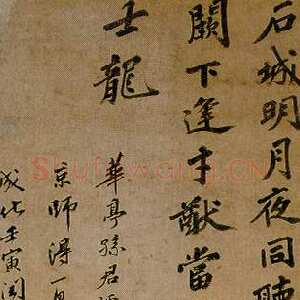 石城明月夜同聽
闕下逢才猷當
士龍
華亭孫君
京師得一
成化壬寅閏